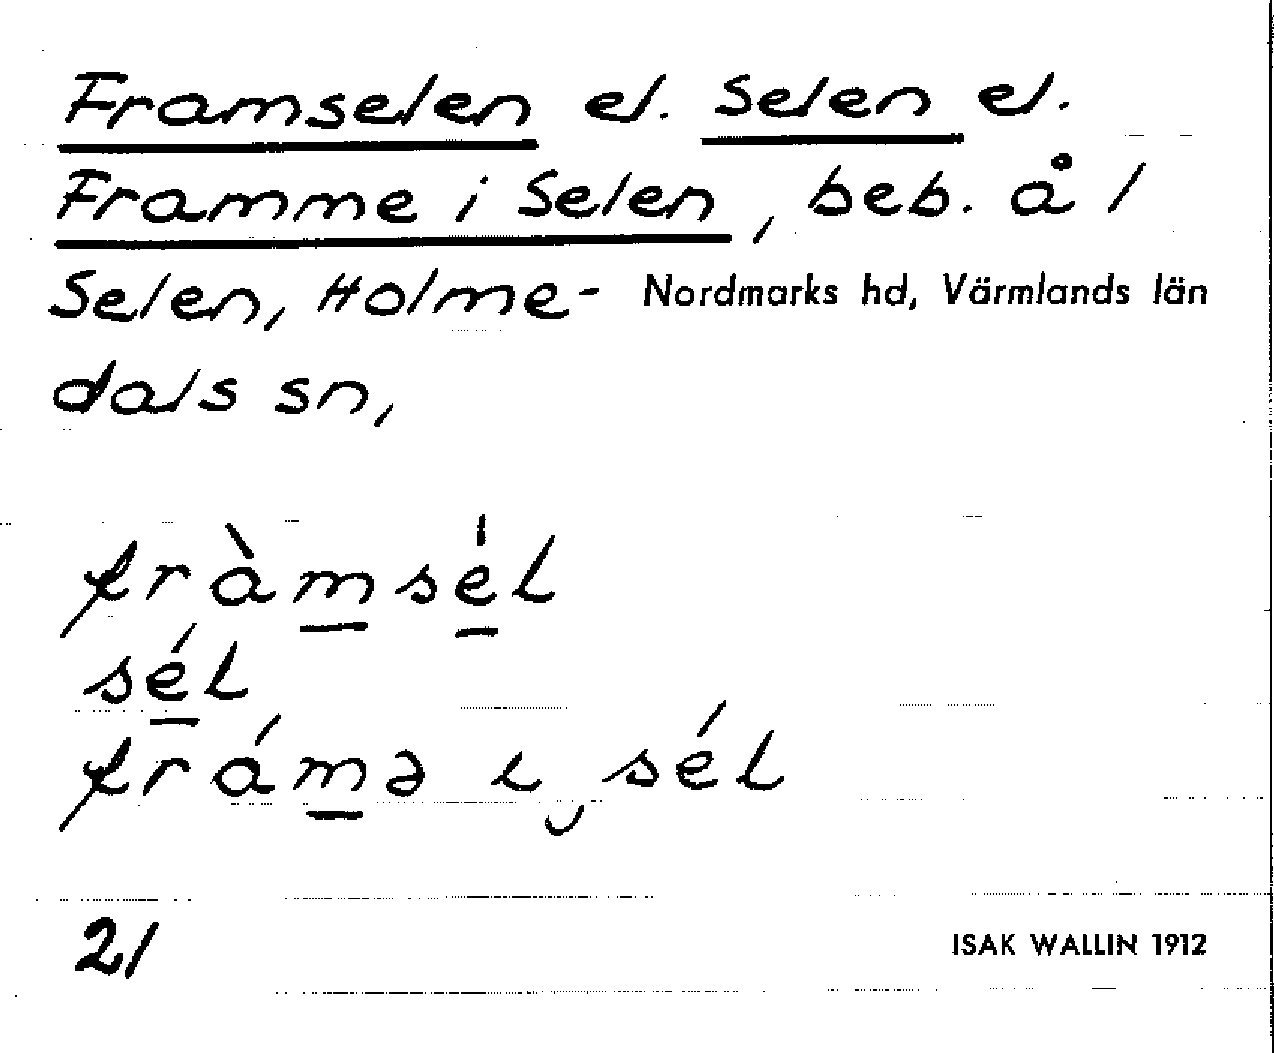 Framselen el. Selen el.
Framme i Selen, beb. å 1
Selen, Holme- Nordmarks hd, Värmlands län
dals sn,
fràmsél
sél
frámə i sél
21
ISAK WALLIN 1912